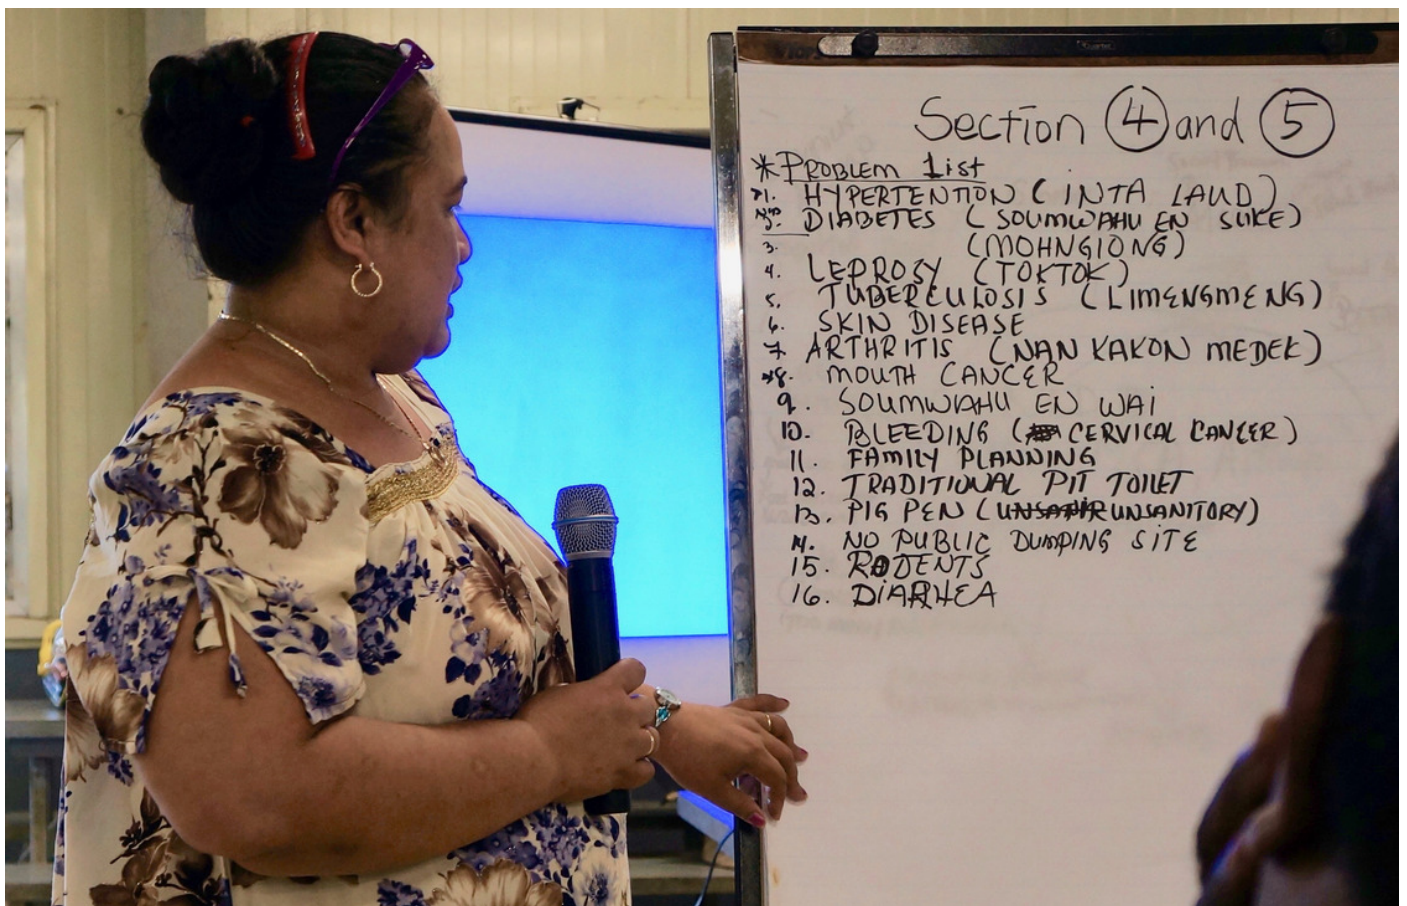 Section 4 and 5
*PROBLEM List
*1. HYPERTENTION (INTA LAUD)
2. DIABETES (SOUMWAHU EN SUKE)
3. (MOHNGIONG)
4. LEPROSY (TOKTOK)
5. TUBERCULOSIS (LIMENGMENG)
6. SKIN DISEASE
7 ARTHRITIS (NAN KAKON MEDEK)
*8. MOUTH CANCER
9. SOUMWAHU EN WAI
10. BLEEDING (CERVICAL CANCER)
11. FAMILY PLANNING
12. TRADITIONAL PIT TOILET
13. PIG PEN (UNSANITORY)
14. NO PUBLIC DUMPING SITE
15. RODENTS
16. DIARHEA